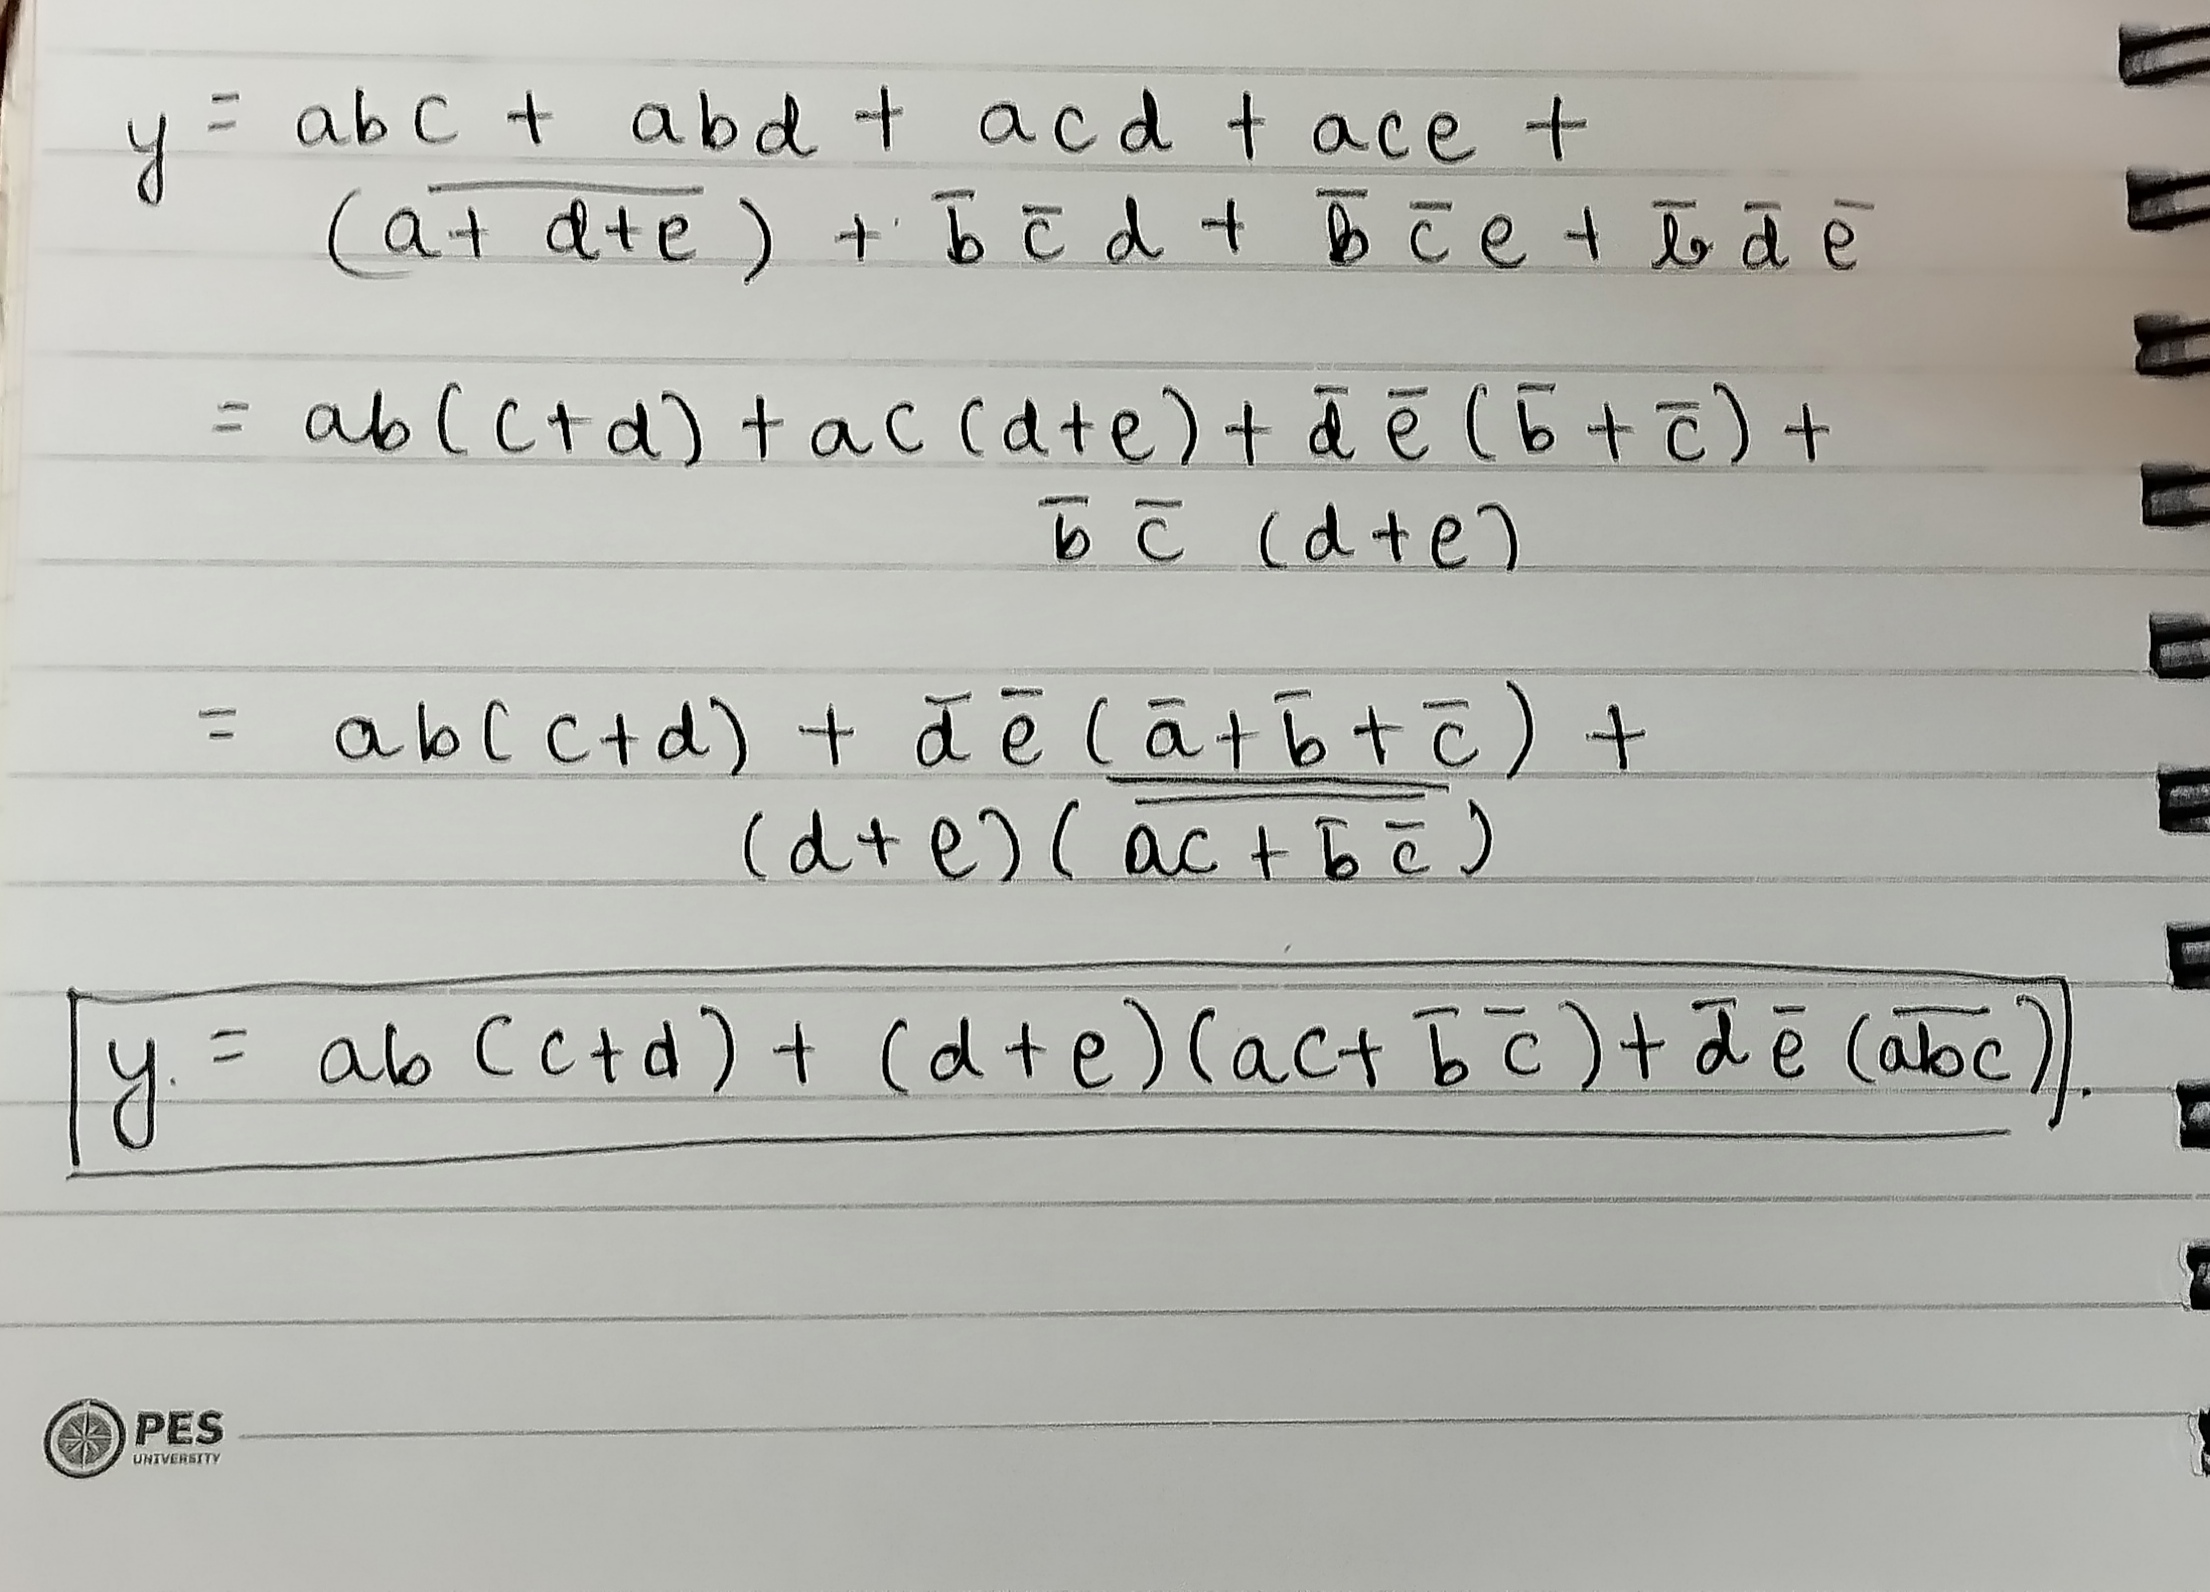 y = abc + abd + acd + ace +
(a̅+̅ ̅d̅+̅e̅) + b̅ c̅ d + b̅ c̅ e + b̅ d̅ e̅
= ab(c+d) + ac(d+e) + d̅ e̅ (b̅ + c̅) +
b̅ c̅ (d+e)
= ab(c+d) + d̅ e̅ (a̅ + b̅ + c̅) +
(d+e)(a̅c̅ ̅+̅ ̅b̅ c̅)
y = ab (c+d) + (d+e)(ac + b̅ c̅) + d̅ e̅ (a̅b̅c̅).
PES
UNIVERSITY